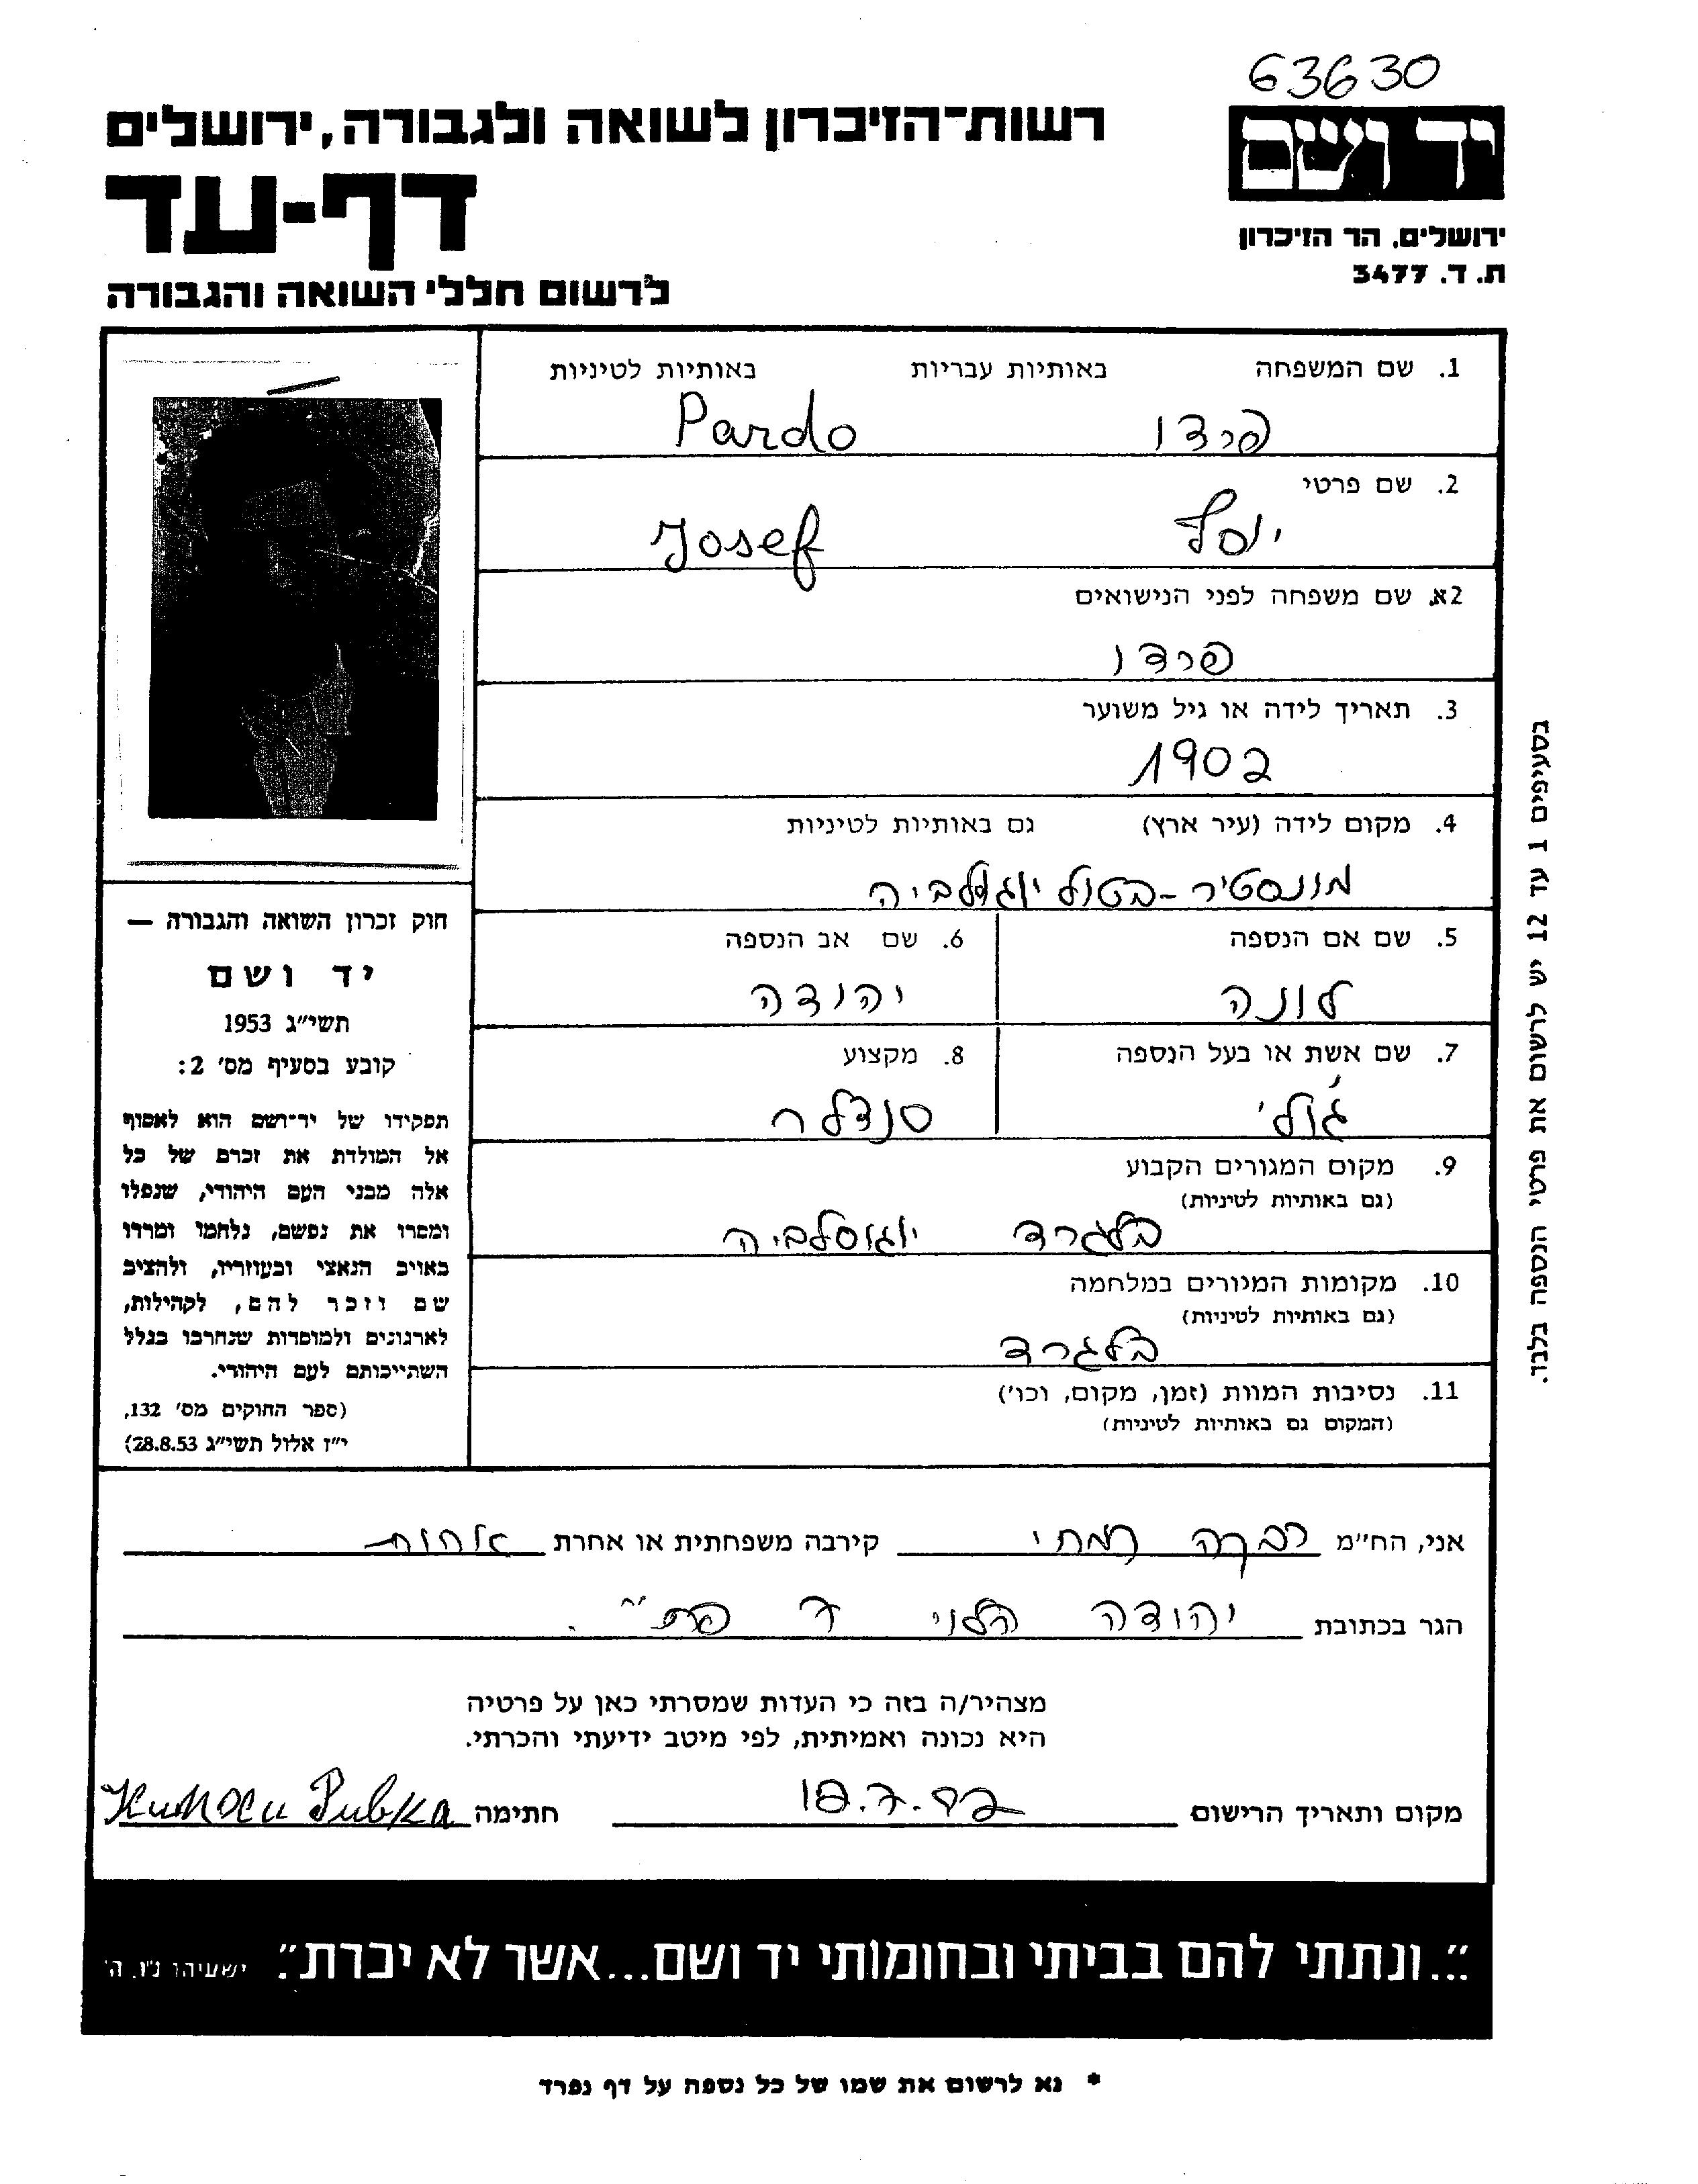 63630
רשות־הזיכרון לשואה ולגבורה, ירושלים
יד ושם
דף-עד
ירושלים, הר הזיכרון
ת. ד. 3477
לרשום חללי השואה והגבורה
1. שם המשפחה באותיות עבריות באותיות לטיניות
פרדו Pardo
2. שם פרטי
יוסף Josef
2א. שם משפחה לפני הנישואים
פרדו
3. תאריך לידה או גיל משוער
1902
4. מקום לידה (עיר ארץ) גם באותיות לטיניות
מונסטיר - בטול יוגולביה
5. שם אם הנספה 6. שם אב הנספה
לונה יהודה
7. שם אשת או בעל הנספה 8. מקצוע
ג'ולי סנדלר
9. מקום המגורים הקבוע
(גם באותיות לטיניות)
בלגרד יוגוסלביה
10. מקומות המגורים במלחמה
(גם באותיות לטיניות)
בלגרד
11. נסיבות המוות (זמן, מקום, וכו')
(המקום גם באותיות לטיניות)
חוק זכרון השואה והגבורה —
יד ושם
תשי״ג 1953
קובע בסעיף מס׳ 2:
תפקידו של יד־ושם הוא לאסוף
אל המולדת את זכרם של כל
אלה מבני העם היהודי, שנפלו
ומסרו את נפשם, נלחמו ומרדו
באויב הנאצי ובעוזריו, ולהציב
שם וזכר להם, לקהילות,
לארגונים ולמוסדות שנחרבו בגלל
השתייכותם לעם היהודי.
(ספר החוקים מס׳ 132,
י״ז אלול תשי״ג 28.8.53)
בסעיפים 1 עד 12 יש לרשום את פרטי הנספה בלבד.
אני, הח״מ רבקה קמחי קירבה משפחתית או אחרת אחות
הגר בכתובת יהודה הלוי 7 פת״
מצהיר/ה בזה כי העדות שמסרתי כאן על פרטיה
היא נכונה ואמיתית, לפי מיטב ידיעתי והכרתי.
מקום ותאריך הרישום 18.7. חתימה
״...ונתתי להם בביתי ובחומותי יד ושם...אשר לא יכרת״. ישעיהו נ״ו, ה׳
* נא לרשום את שמו של כל נספה על דף נפרד